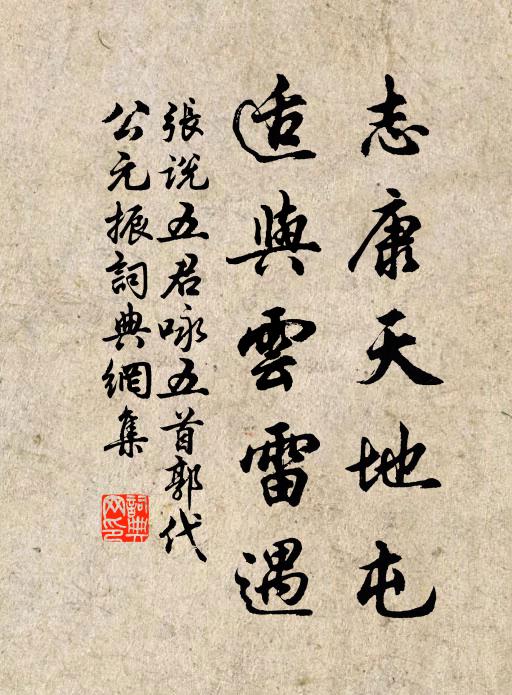 志康天地屯
適與雲雷遇
張説五君咏五首郭代
公元振詞典網集
詞典網印